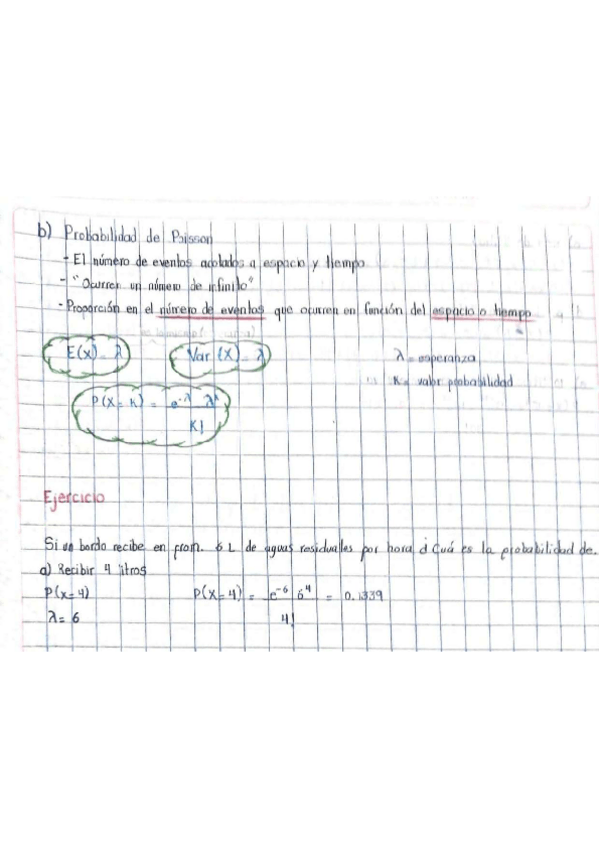 b) Probabilidad de Poisson
- El número de eventos acotados a espacio y tiempo
- "Ocurren un número de infinito"
- Proporción en el número de eventos que ocurren en función del espacio o tiempo
E(x) = λ Var (X) = λ λ = esperanza
K = valor probabilidad
P(X = K) = e^-λ λ^k
K!
Ejercicio
Si un bordo recibe en prom. 6 L de aguas residuales por hora ¿ Cuá es la probabilidad de.
a) Recibir 4 litros
P(x=4) P(X=4) = e^-6 6^4 = 0.1339
λ = 6 4!